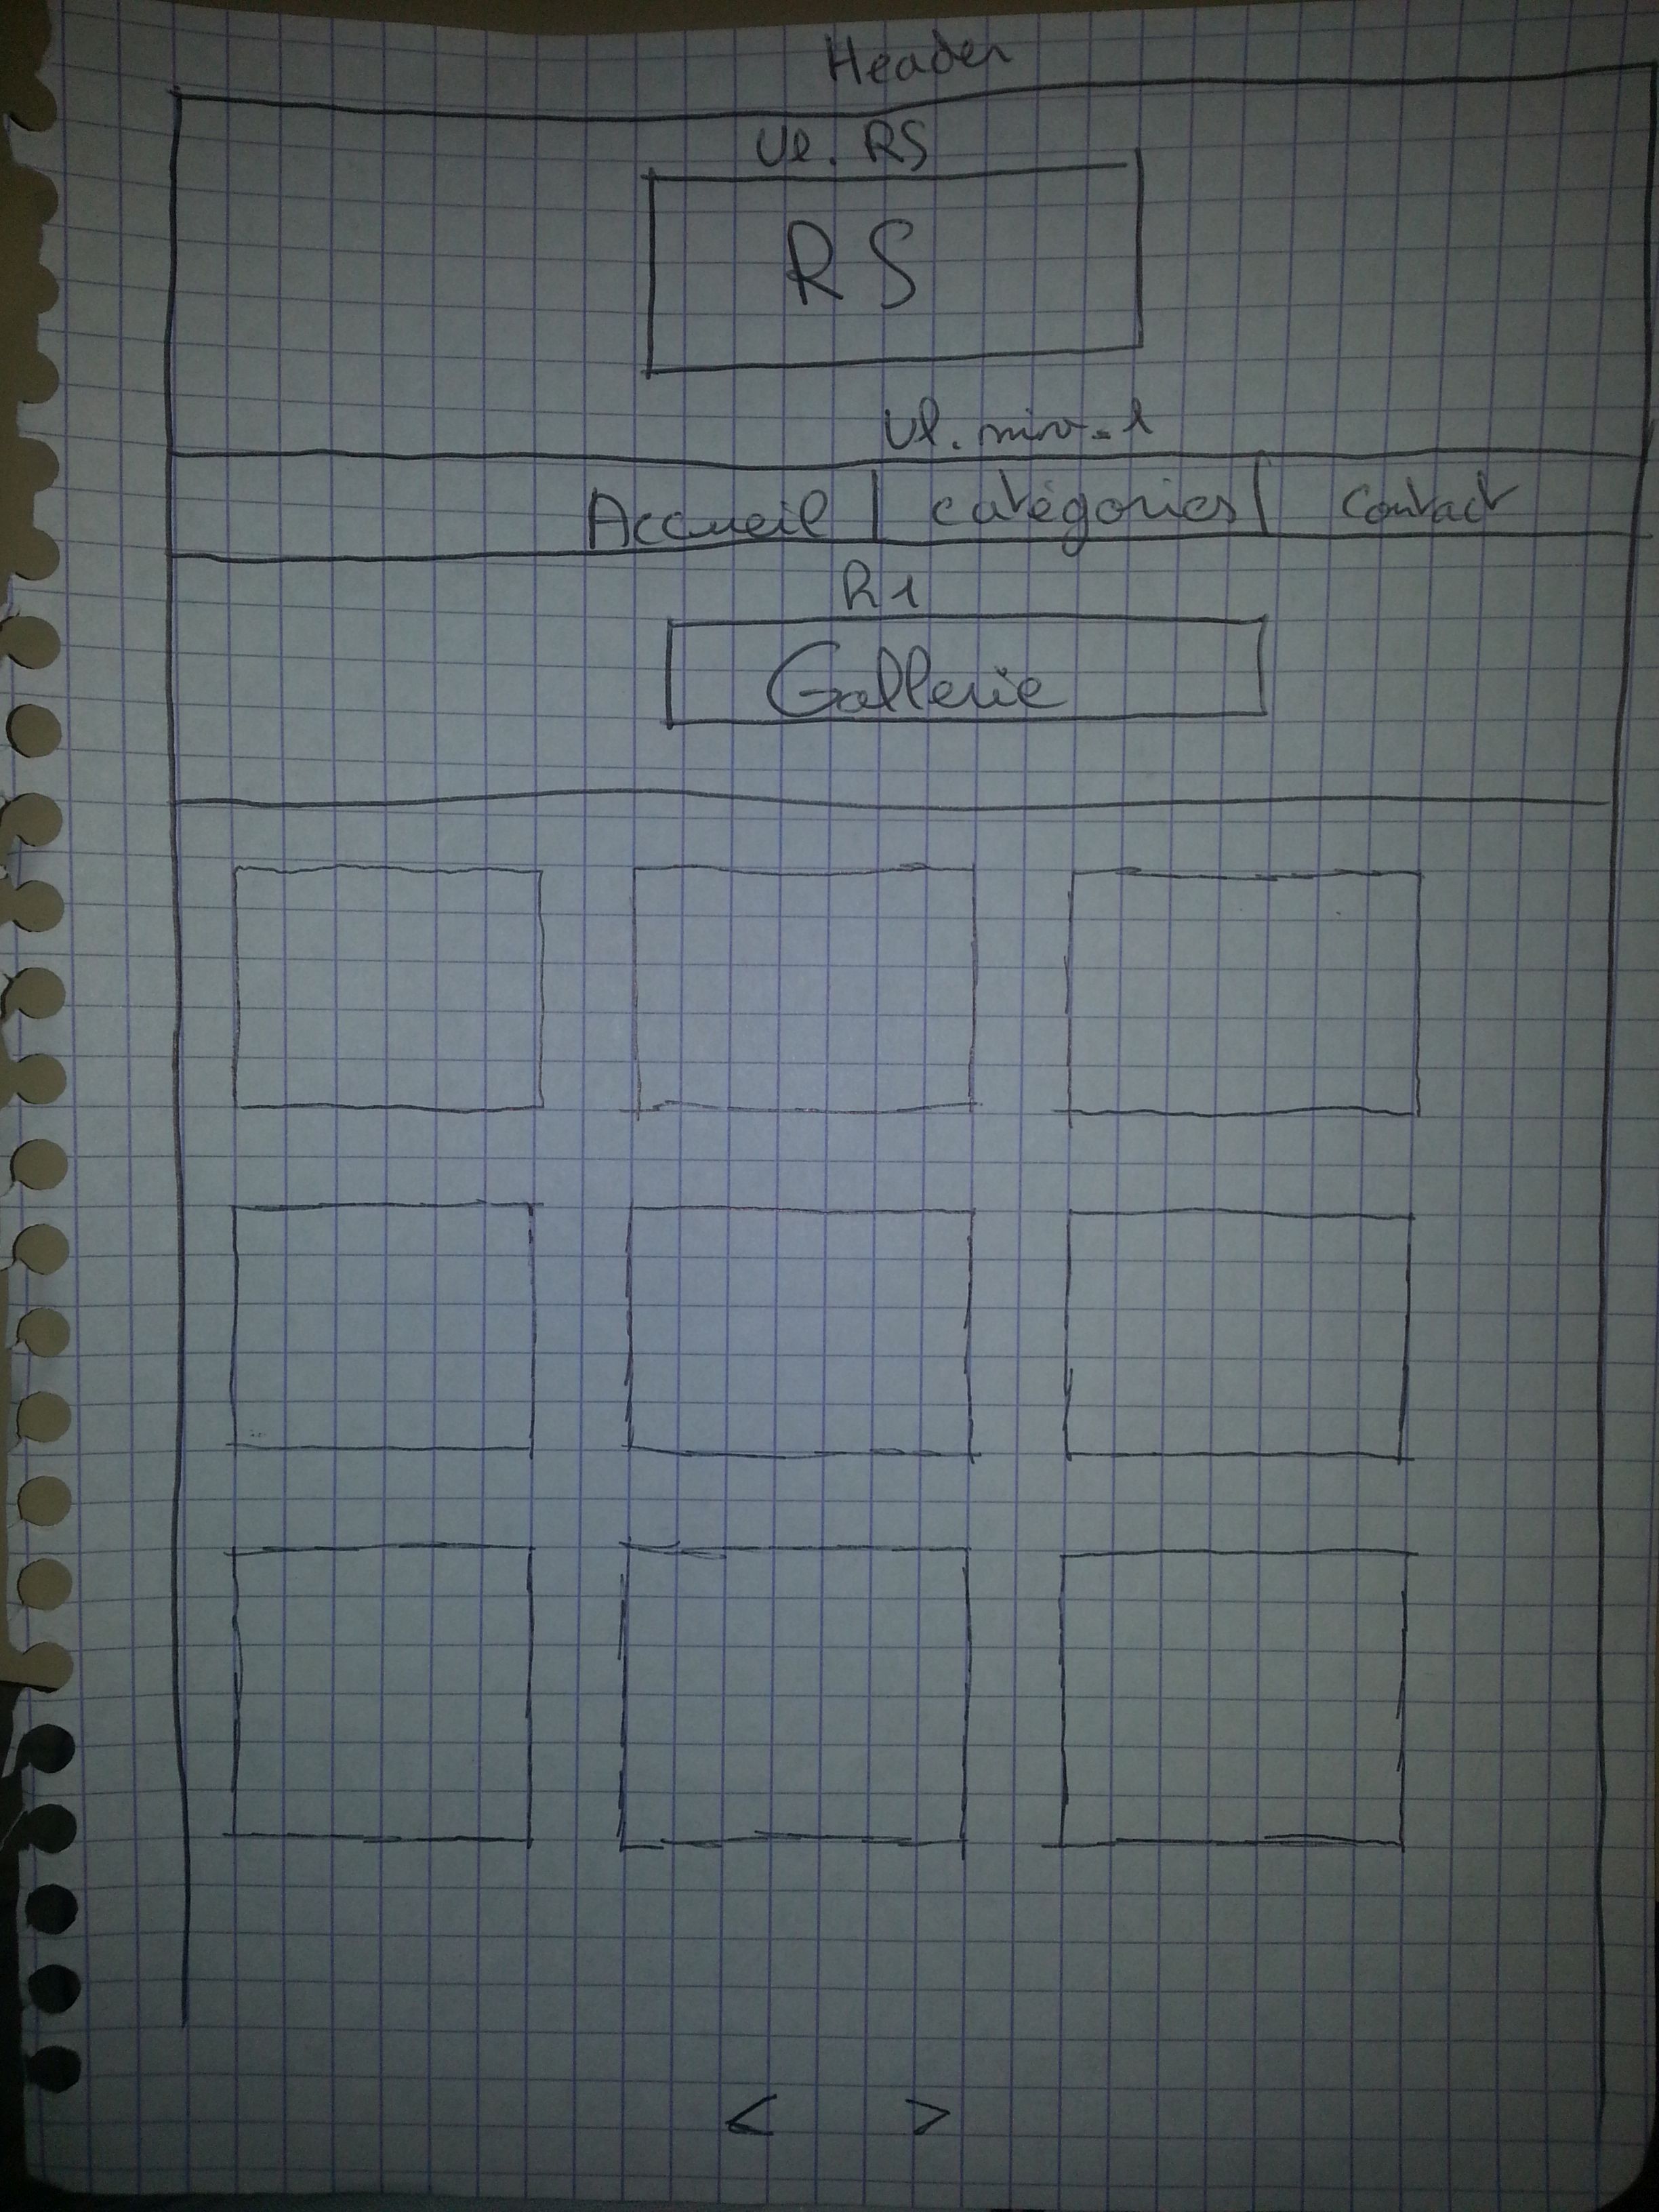 Header
Ul. RS
RS
Ul. niv-1
Accueil | catégories | Contact
R1
Gallerie
< >